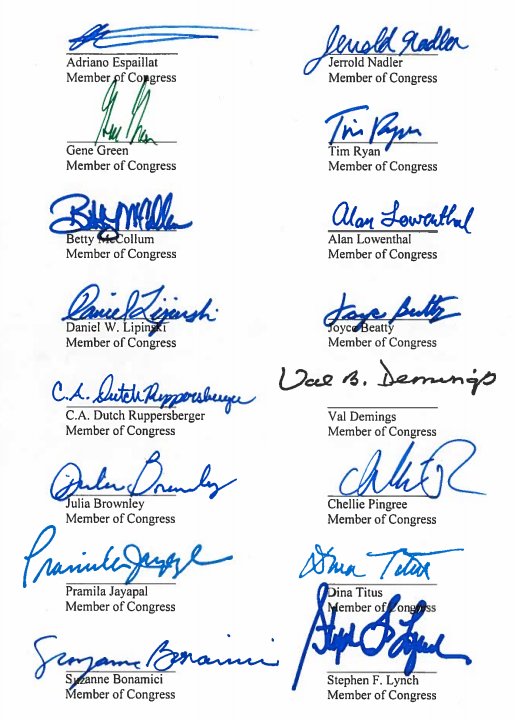 Adriano Espaillat
Member of Congress
Jerrold Nadler
Jerrold Nadler
Member of Congress
Gene Green
Gene Green
Member of Congress
Tim Ryan
Tim Ryan
Member of Congress
Betty McCollum
Betty McCollum
Member of Congress
Alan Lowenthal
Alan Lowenthal
Member of Congress
Daniel Lipinski
Daniel W. Lipinski
Member of Congress
Joyce Beatty
Joyce Beatty
Member of Congress
C.A. Dutch Ruppersberger
C.A. Dutch Ruppersberger
Member of Congress
Val B. Demings
Val Demings
Member of Congress
Julia Brownley
Julia Brownley
Member of Congress
Chellie Pingree
Member of Congress
Pramila Jayapal
Pramila Jayapal
Member of Congress
Dina Titus
Dina Titus
Member of Congress
Suzanne Bonamici
Suzanne Bonamici
Member of Congress
Stephen F. Lynch
Stephen F. Lynch
Member of Congress